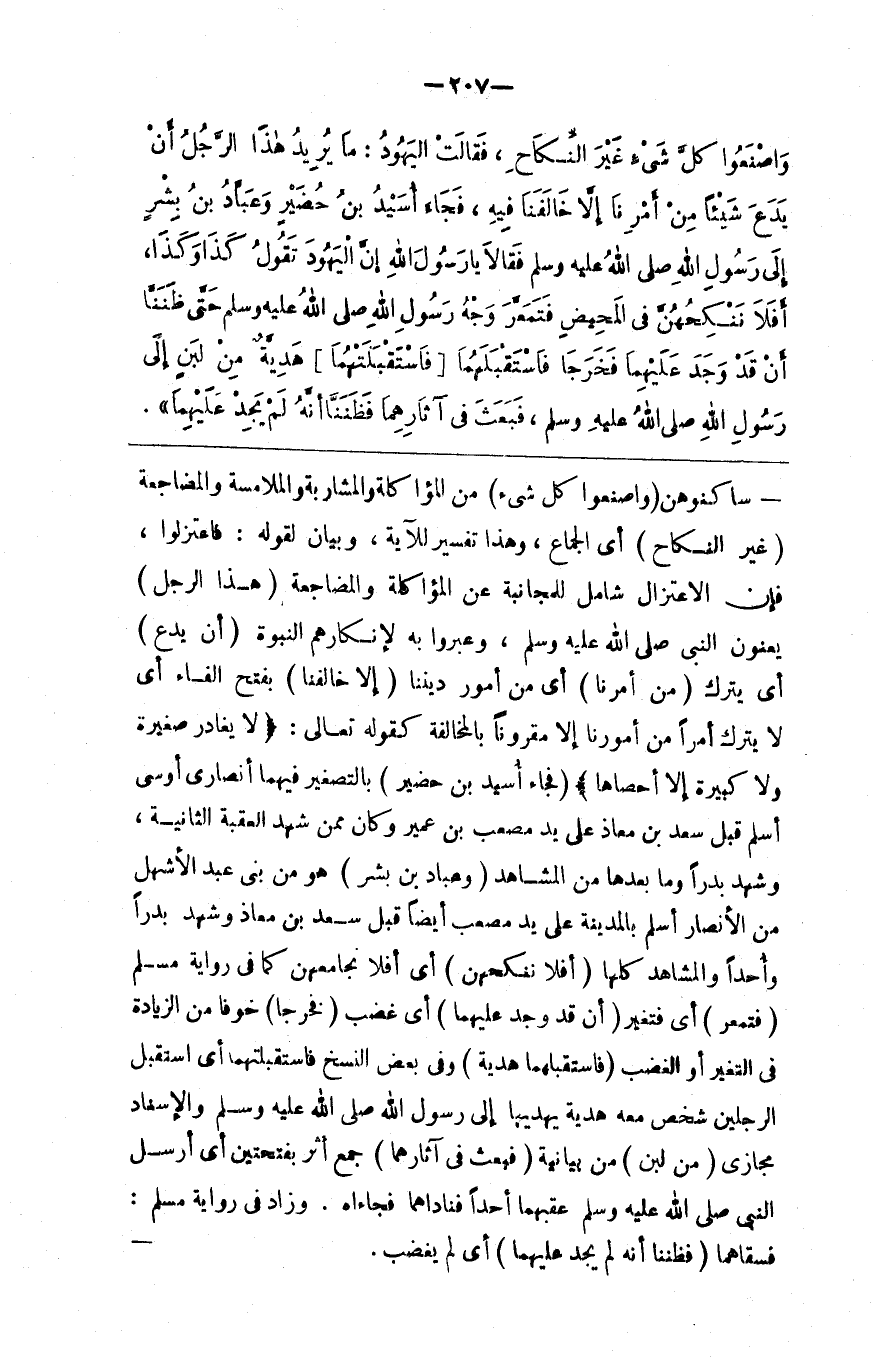 —٢٠٧—
وَاصْنَعُوا كلَّ شَىْءٍ غَيْرَ النِّـكَاحِ ، فَقَالَتْ اليَهُودُ : مَا يُرِيدُ هٰذَا الرَّجُلُ أَنْ
يَدَعَ شَيْئاً مِنْ أَمْرِ نَا إِلَّا خَالَفَنَا فِيهِ ، فَجَاء أُسَيْدُ بنُ حُضَيْرٍ وَعَبَّادُ بنُ بِشْرٍ
إِلَى رَسُولِ اللهِ صلى اللهُ عليه وسلم فَقَالاَ يارَسُولَ اللهِ إِنَّ الْيَهُودَ تَقُولُ كَذَا وَكَذَا،
أَفَلاَ نَنْـكِحُهُنَّ فى المَحِيضِ فَتَمَعَّرَ وَجْهُ رَسُولِ اللهِ صلى اللهُ عليهِ وسلم حَتَّى ظَنَنَّا
أَنْ قَدْ وَجَدَ عَلَيْهِما فَخَرَجَا فَاسْتَقْبَلَهُمَا [ فَاسْتَقْبَلَتْهُمَا ] هَدِيَّةٌ مِنْ لَبَنٍ إِلَى
رَسُولِ اللهِ صلى اللهُ عليهِ وسلم ، فَبَعَثَ فى آثَارِهِما فَظَنَنَّا أنَّهُ لَمْ يَجِدْ عَلَيْهِمَا» .
— ساكنوهن (واصنعوا كل شىء) من المؤاكلة والمشاربة والملامسة والمضاجعة
( غير النـكاح ) أى الجماع ، وهذا تفسير للآية ، وبيان لقوله : فاعتزلوا ،
فإن الاعتزال شامل للمجانبة عن المؤاكلة والمضاجعة ( هـذا الرجل )
يعنون النبى صلى الله عليه وسلم ، وعبروا به لإنـكارهم النبوة ( أن يدع )
أى يترك ( من أمرنا ) أى من أمور ديننا ( إلا خالفنا ) بفتح الفـاء أى
لا يترك أمراً من أمورنا إلا مقروناً بالمخالفة كـقوله تعـالى : ﴿ لا يغادر صغيرة
ولا كبيرة إلا أحصاها ﴾ (فجاء أُسيد بن حضير ) بالتصغير فيهما أنصارى أوسى
أسلم قبل سعد بن معاذ على يد مصعب بن عمير وكان ممن شهد العقبة الثانيـة ،
وشهد بدراً وما بعدها من المشـاهد ( وعباد بن بشر ) هو من بنى عبد الأشهل
من الأنصار أسلم بالمدينة على يد مصعب أيضاً قبل سـعد بن معاذ وشهد بدراً
وأُحداً والمشاهد كلها ( أفلا ننـكحهن ) أى أفلا نجامعهن كما فى رواية مسـلم
( فتمعر ) أى فتغير ( أن قد وجد عليهما ) أى غضب ( فخرجا) خوفا من الزيادة
فى التغير أو الغضب (فاستقبلهما هدية ) وفى بعض النسخ فاستقبلتهما أى استقبل
الرجلين شخص معه هدية يهديها إلى رسول الله صلى الله عليه وسـلم والإسناد
مجازى ( من لبن ) من بيانية ( فبعث فى آثارهما ) جمع أثر بفتحتين أى أرسـل
النبى صلى الله عليه وسلم عقبهما أحداً فناداهما فجاءاه . وزاد فى رواية مسلم :
فسقاهما ( فظننا أنه لم يجد عليهما ) أى لم يغضب . —